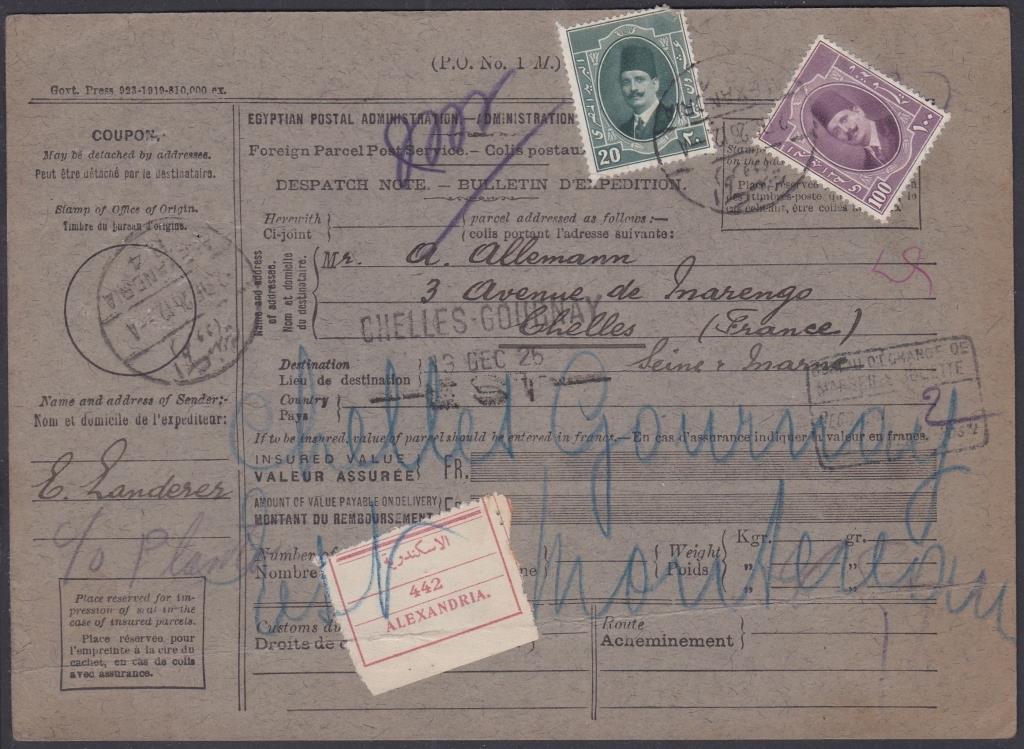 (P.O. No. 1 M.)
Govt. Press 923-1919-310,000 ex.
COUPON.
May be detached by addressee.
Peut être détaché par le destinataire.
Stamp of Office of Origin.
Timbre du bureau d'origine.
Name and address of Sender:-
Nom et domicile de l'expediteur:
E. Landerer
c/o
Place reserved for im-
pression of seal in the
case of insured parcels.
Place réservée pour
l'empreinte à la cire du
cachet, en cas de colis
avec assurance.
EGYPTIAN POSTAL ADMINISTRATION.—ADMINISTRATION
Foreign Parcel Post Service.— Colis postau
DESPATCH NOTE. — BULLETIN D'EXPEDITION.
20
100
١٠٠
٢٠
Stamps
on the
Place réservée
des timbres-poste
Herewith
Ci-joint
parcel addressed as follows:—
colis portant l'adresse suivante:
Name and address
of addressee.
Nom et domicile
du destinataire.
Mr. A. Allemann
3 Avenue de Marengo
Chelles (France)
Seine & Marne
CHELLES-GOURNAY
13 DEC 25
EST
Destination
Lieu de destination
Country
Pays
BUREAU D'ECHANGE DE
MARSEILLE JOLIETTE
Chelles Gournay
If to be insured, value of parcel should be entered in francs.—En cas d'assurance indiquer la valeur en francs.
INSURED VALUE
VALEUR ASSURÉE
FR.
AMOUNT OF VALUE PAYABLE ON DELIVERY
MONTANT DU REMBOURSEMENT
Est Montereau
Number of
Nombre
الاسكندرية
442
ALEXANDRIA.
Weight
Poids
Kgr.
gr.
„ „
Customs du
Droits de
Route
Acheminement